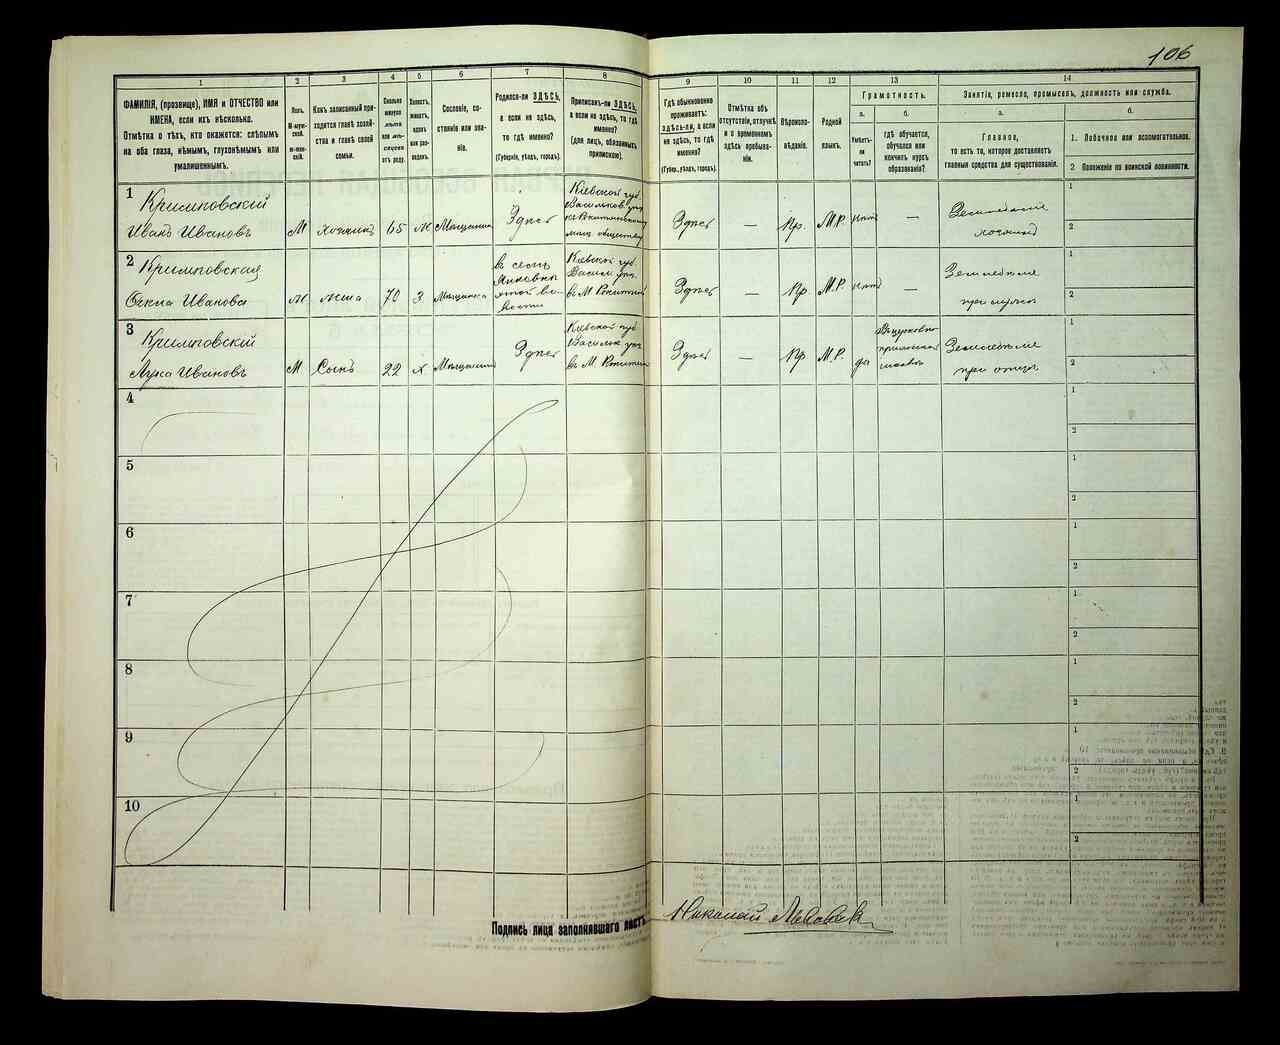 106
1
2
3
4
5
6
7
8
9
10
11
12
13
14
ФАМИЛІЯ, (прозвище), ИМЯ и ОТЧЕСТВО или
ИМЕНА, если ихъ нѣсколько.
Отмѣтка о тѣхъ, кто окажется: слѣпымъ
на оба глаза, нѣмымъ, глухонѣмымъ или
умалишеннымъ.
Полъ.
М-муж-
ской.
Ж-жен-
скій.
Какъ записанный при-
ходится главѣ хозяй-
ства и главѣ своей
семьи.
Сколько
минуло
лѣтъ
или мѣ-
сяцевъ
отъ роду.
Холостъ,
женатъ,
вдовъ
или раз-
веденъ.
Сословіе, со-
стояніе или зва-
ніе.
Родился-ли ЗДѢСЬ,
а если не здѣсь,
то гдѣ именно?
(Губернія, уѣздъ, городъ).
Приписанъ-ли ЗДѢСЬ,
а если не здѣсь, то гдѣ
именно?
(для лицъ, обязанныхъ
припискою).
Гдѣ обыкновенно
проживаетъ:
здѣсь-ли, а если
не здѣсь, то гдѣ
именно?
(Губер., уѣздъ, городъ).
Отмѣтка объ
отсутствіи, отлучкѣ
и о временномъ
здѣсь пребыва-
ніи.
Вѣроиспо-
вѣданіе.
Родной
языкъ.
Грамотность.
а.
Умѣетъ-
ли
читать?
б.
гдѣ обучается,
обучался или
кончилъ курсъ
образованія?
Занятіе, ремесло, промыселъ, должность или служба.
а.
Главное,
то есть то, которое доставляетъ
главныя средства для существованія.
б.
1. Побочное или вспомогательное.
2 Положеніе по воинской повинности.
1
Кримповскій
Иванъ Ивановъ
М
хозяинъ
65
ж
Мѣщанинъ
Здѣсь
Кіевской губ.
Васильков. уѣз.
мѣщ. обществу
Здѣсь
—
Пр.
М.Р.
нѣтъ
—
Земледѣліе
хозяинъ
1
2
2
Кримповская
Ивановa
ж
жена
70
З
Мѣщанка
въ селѣ
Кіевской губ.
Васильк. уѣз.
въ М.
Здѣсь
—
Пр
М.Р
нѣтъ
—
Земледѣліе
при мужѣ
1
2
3
Кримповскій
Лука Ивановъ
М
Сынъ
22
х
Мѣщанинъ
Здѣсь
Кіевской губ
Васильк уѣз.
въ М.
Здѣсь
—
Пр
М.Р.
да
Въ церковно
приходской
школѣ
Земледѣліе
при отцѣ
1
2
4
1
2
5
1
2
6
1
2
7
1
2
8
1
2
9
1
2
10
1
2
Подпись лица заполнявшаго листъ
Николай